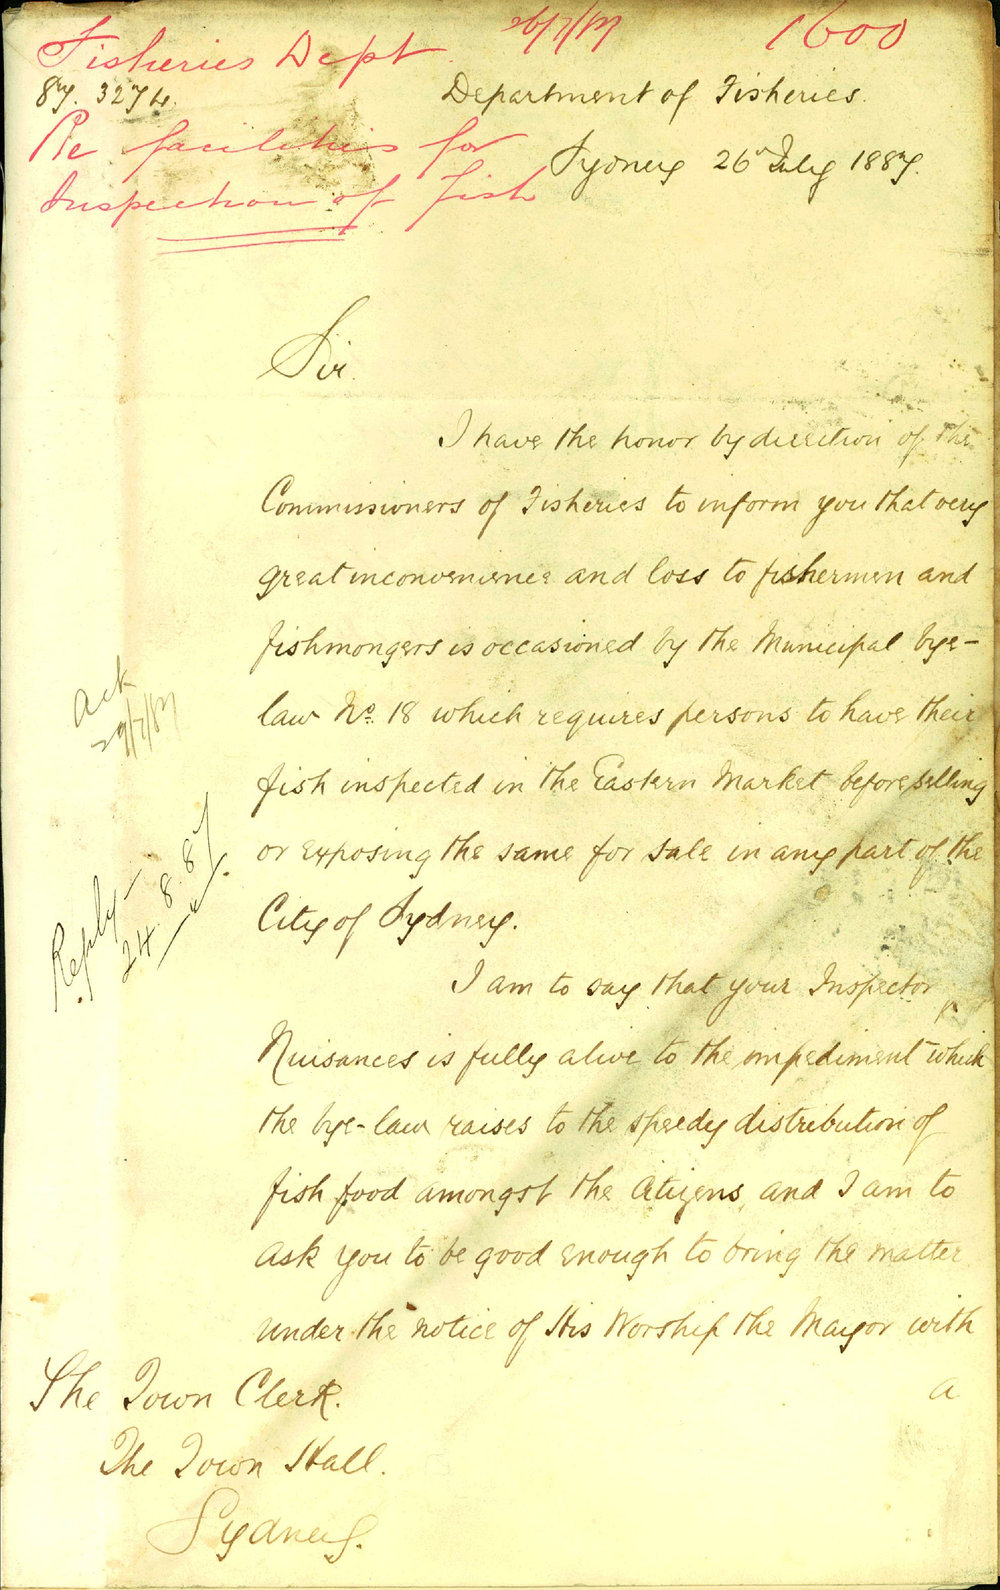 Fisheries Dept 26/7/87 1600
87. 3274.
Department of Fisheries.
Re facilities for
Inspection of fish
Sydney 26 July 1887.
Sir
I have the honor by direction of the
Commissioners of Fisheries to inform you that very
great inconvenience and loss to fishermen and
fishmongers is occasioned by the Municipal bye-
law No. 18 which requires persons to have their
fish inspected in the Eastern Market before selling
or exposing the same for sale in any part of the
City of Sydney.
I am to say that your Inspector
Nuisances is fully alive to the impediment which
the bye-law raises to the speedy distribution of
fish food amongst the Citizens, and I am to
ask you to be good enough to bring the matter
under the notice of His Worship the Mayor with
a
Ack
29/7/87
Reply
24.8.87
The Town Clerk.
The Town Hall.
Sydney.